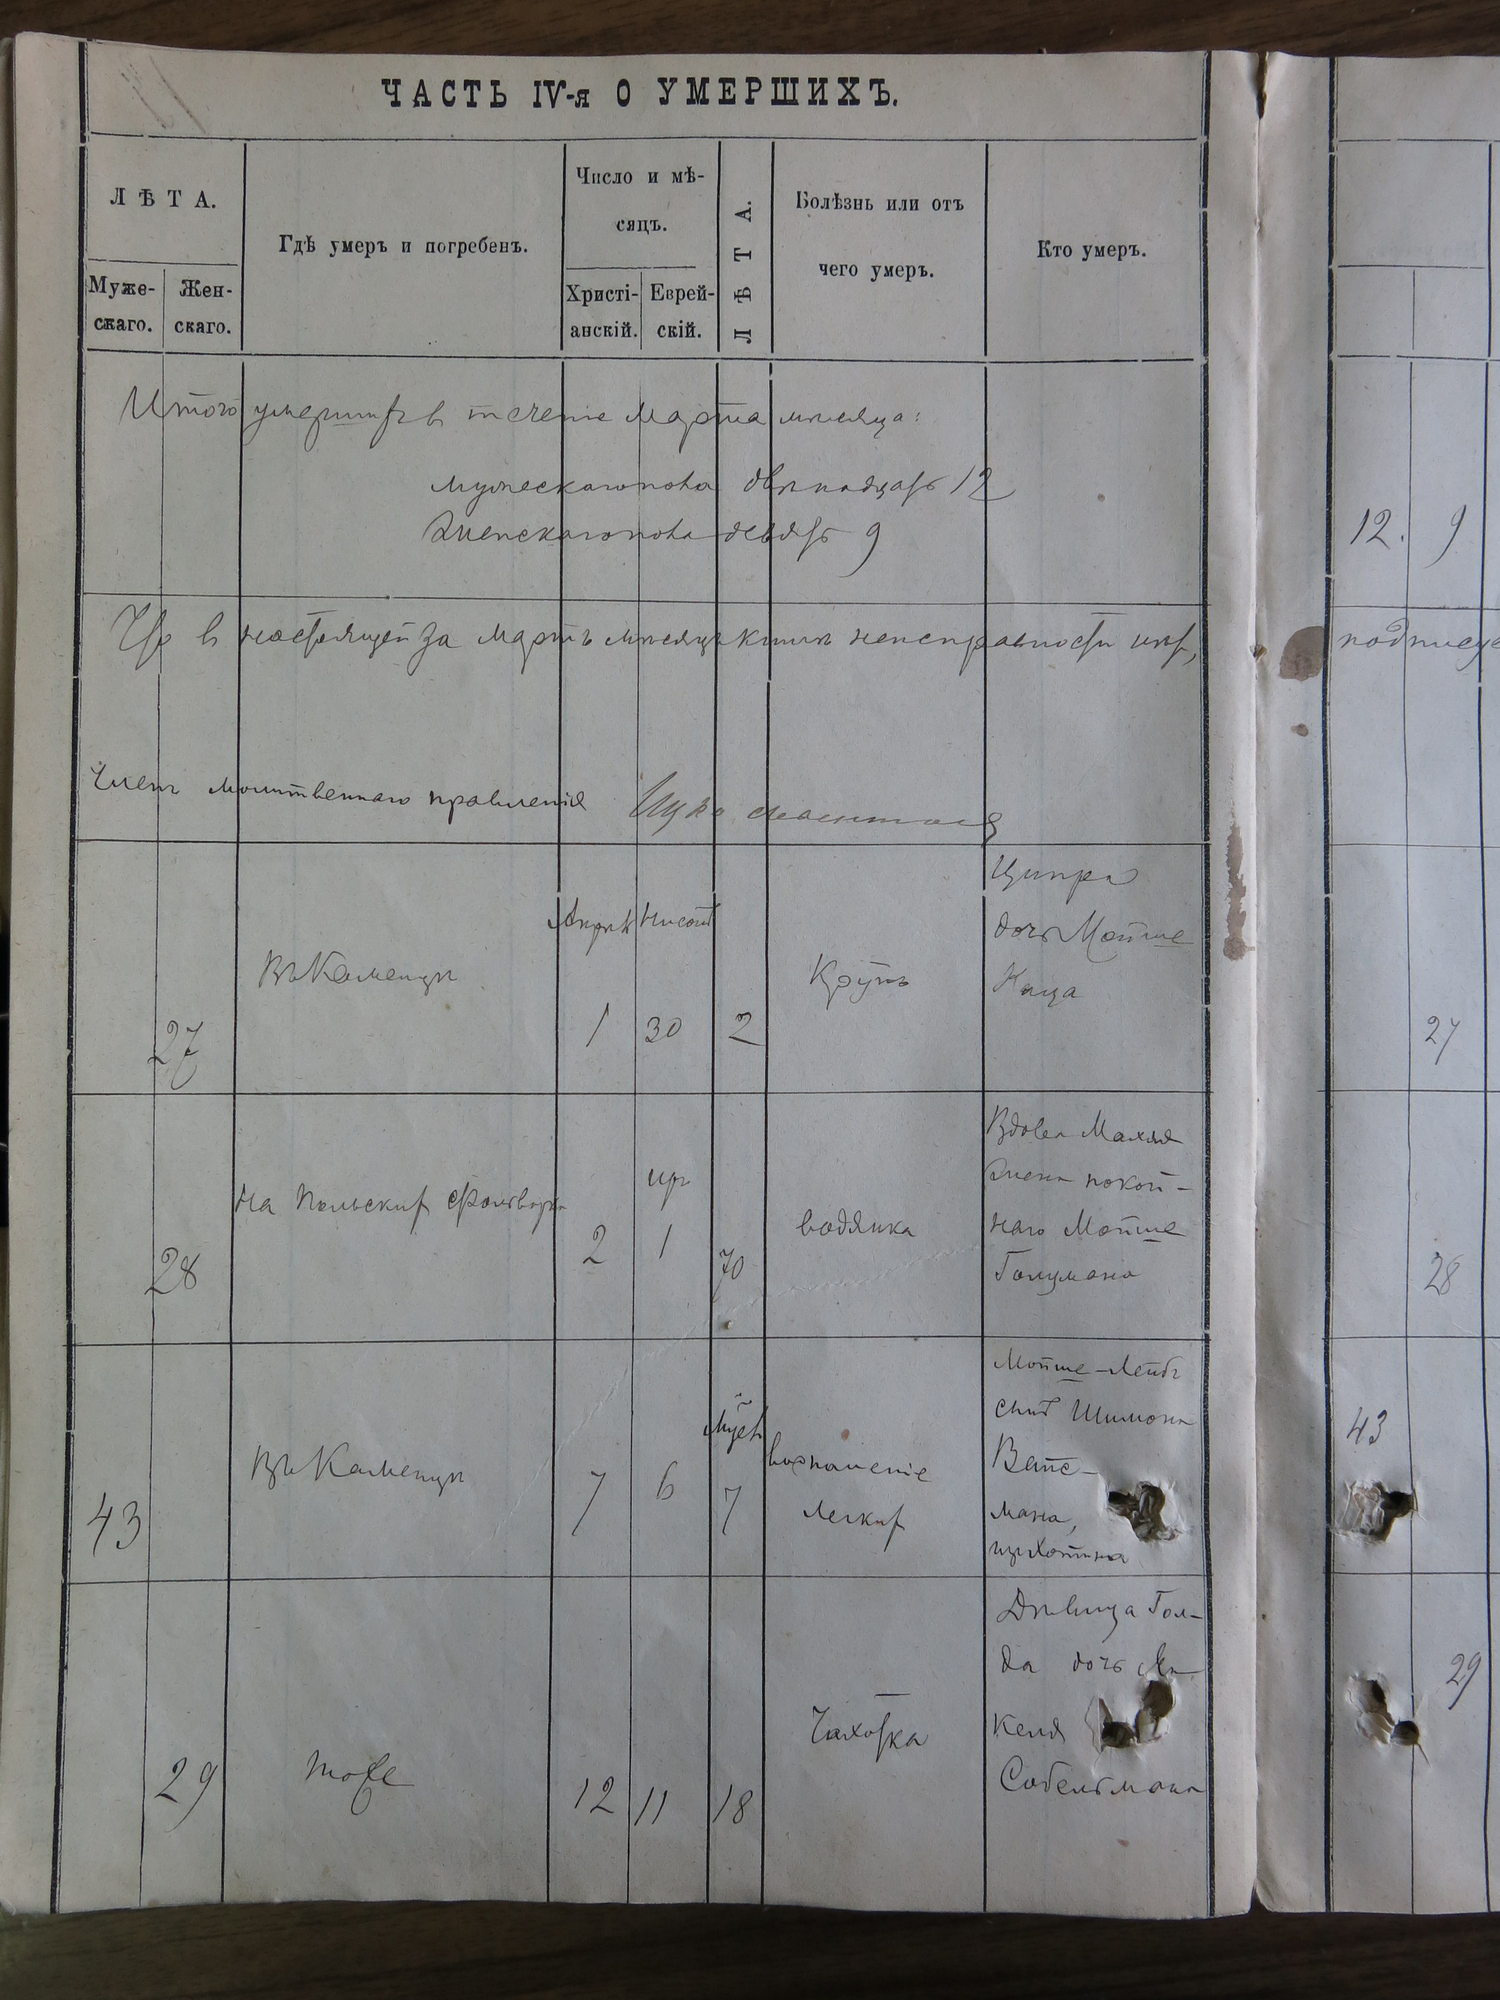 ЧАСТЬ IV-я О УМЕРШИХЪ.
ЛѢТА.
Муже-
скаго.
Жен-
скаго.
Гдѣ умеръ и погребенъ.
Число и мѣ-
сяцъ.
Христі-
анскій.
Еврей-
скій.
ЛѢТА.
Болѣзнь или отъ
чего умеръ.
Кто умеръ.
Итого умершихъ в течете Марта мѣсяца:
мужескаго пола двѣнадцать 12
Женскаго пола девять 9
12. 9
Что в настоящей за Мартъ мѣсяцъ книгѣ неисправности нѣт,
Членъ молитвеннаго правленія
27
Въ Каменцѣ
Апрѣль
1
Нисонъ
30
2
Крупъ
Ципра
дочь Мойше
Каца
27
28
На Польских Фольварках
2
Иръ
1
70
водянка
Вдова Махля
жена покой-
наго Мойше
Гольцмана
28
43
Въ Каменцѣ
7
6
7
воспаленіе
легких
Мойше-Лейбъ
сынъ Шимона
Вайс-
мана,
изъ Хотина
43
29
тоже
12
11
18
Чахотка
Дѣвица Гол-
да дочь
келя
Собельмана
29